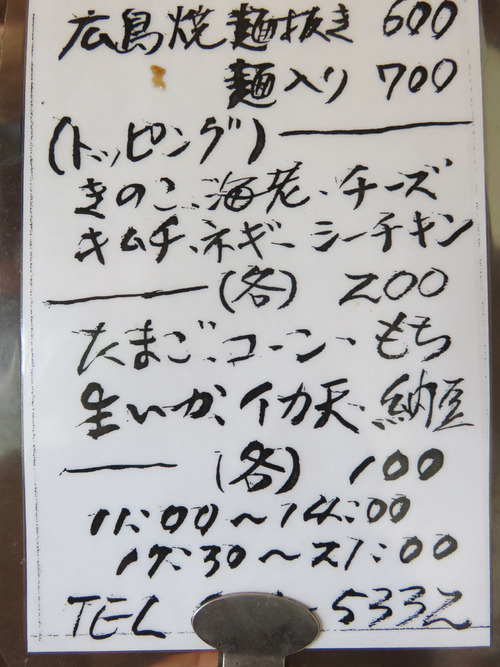 広島焼 麺抜き 600
麺入り 700
(トッピング)
きのこ、海老、チーズ
キムチ、ネギ、シーチキン
(各) 200
たまご、コーン、もち
生いか、イカ天、納豆
(各) 100
11:00～14:00
17:30～21:00
TEL 5332